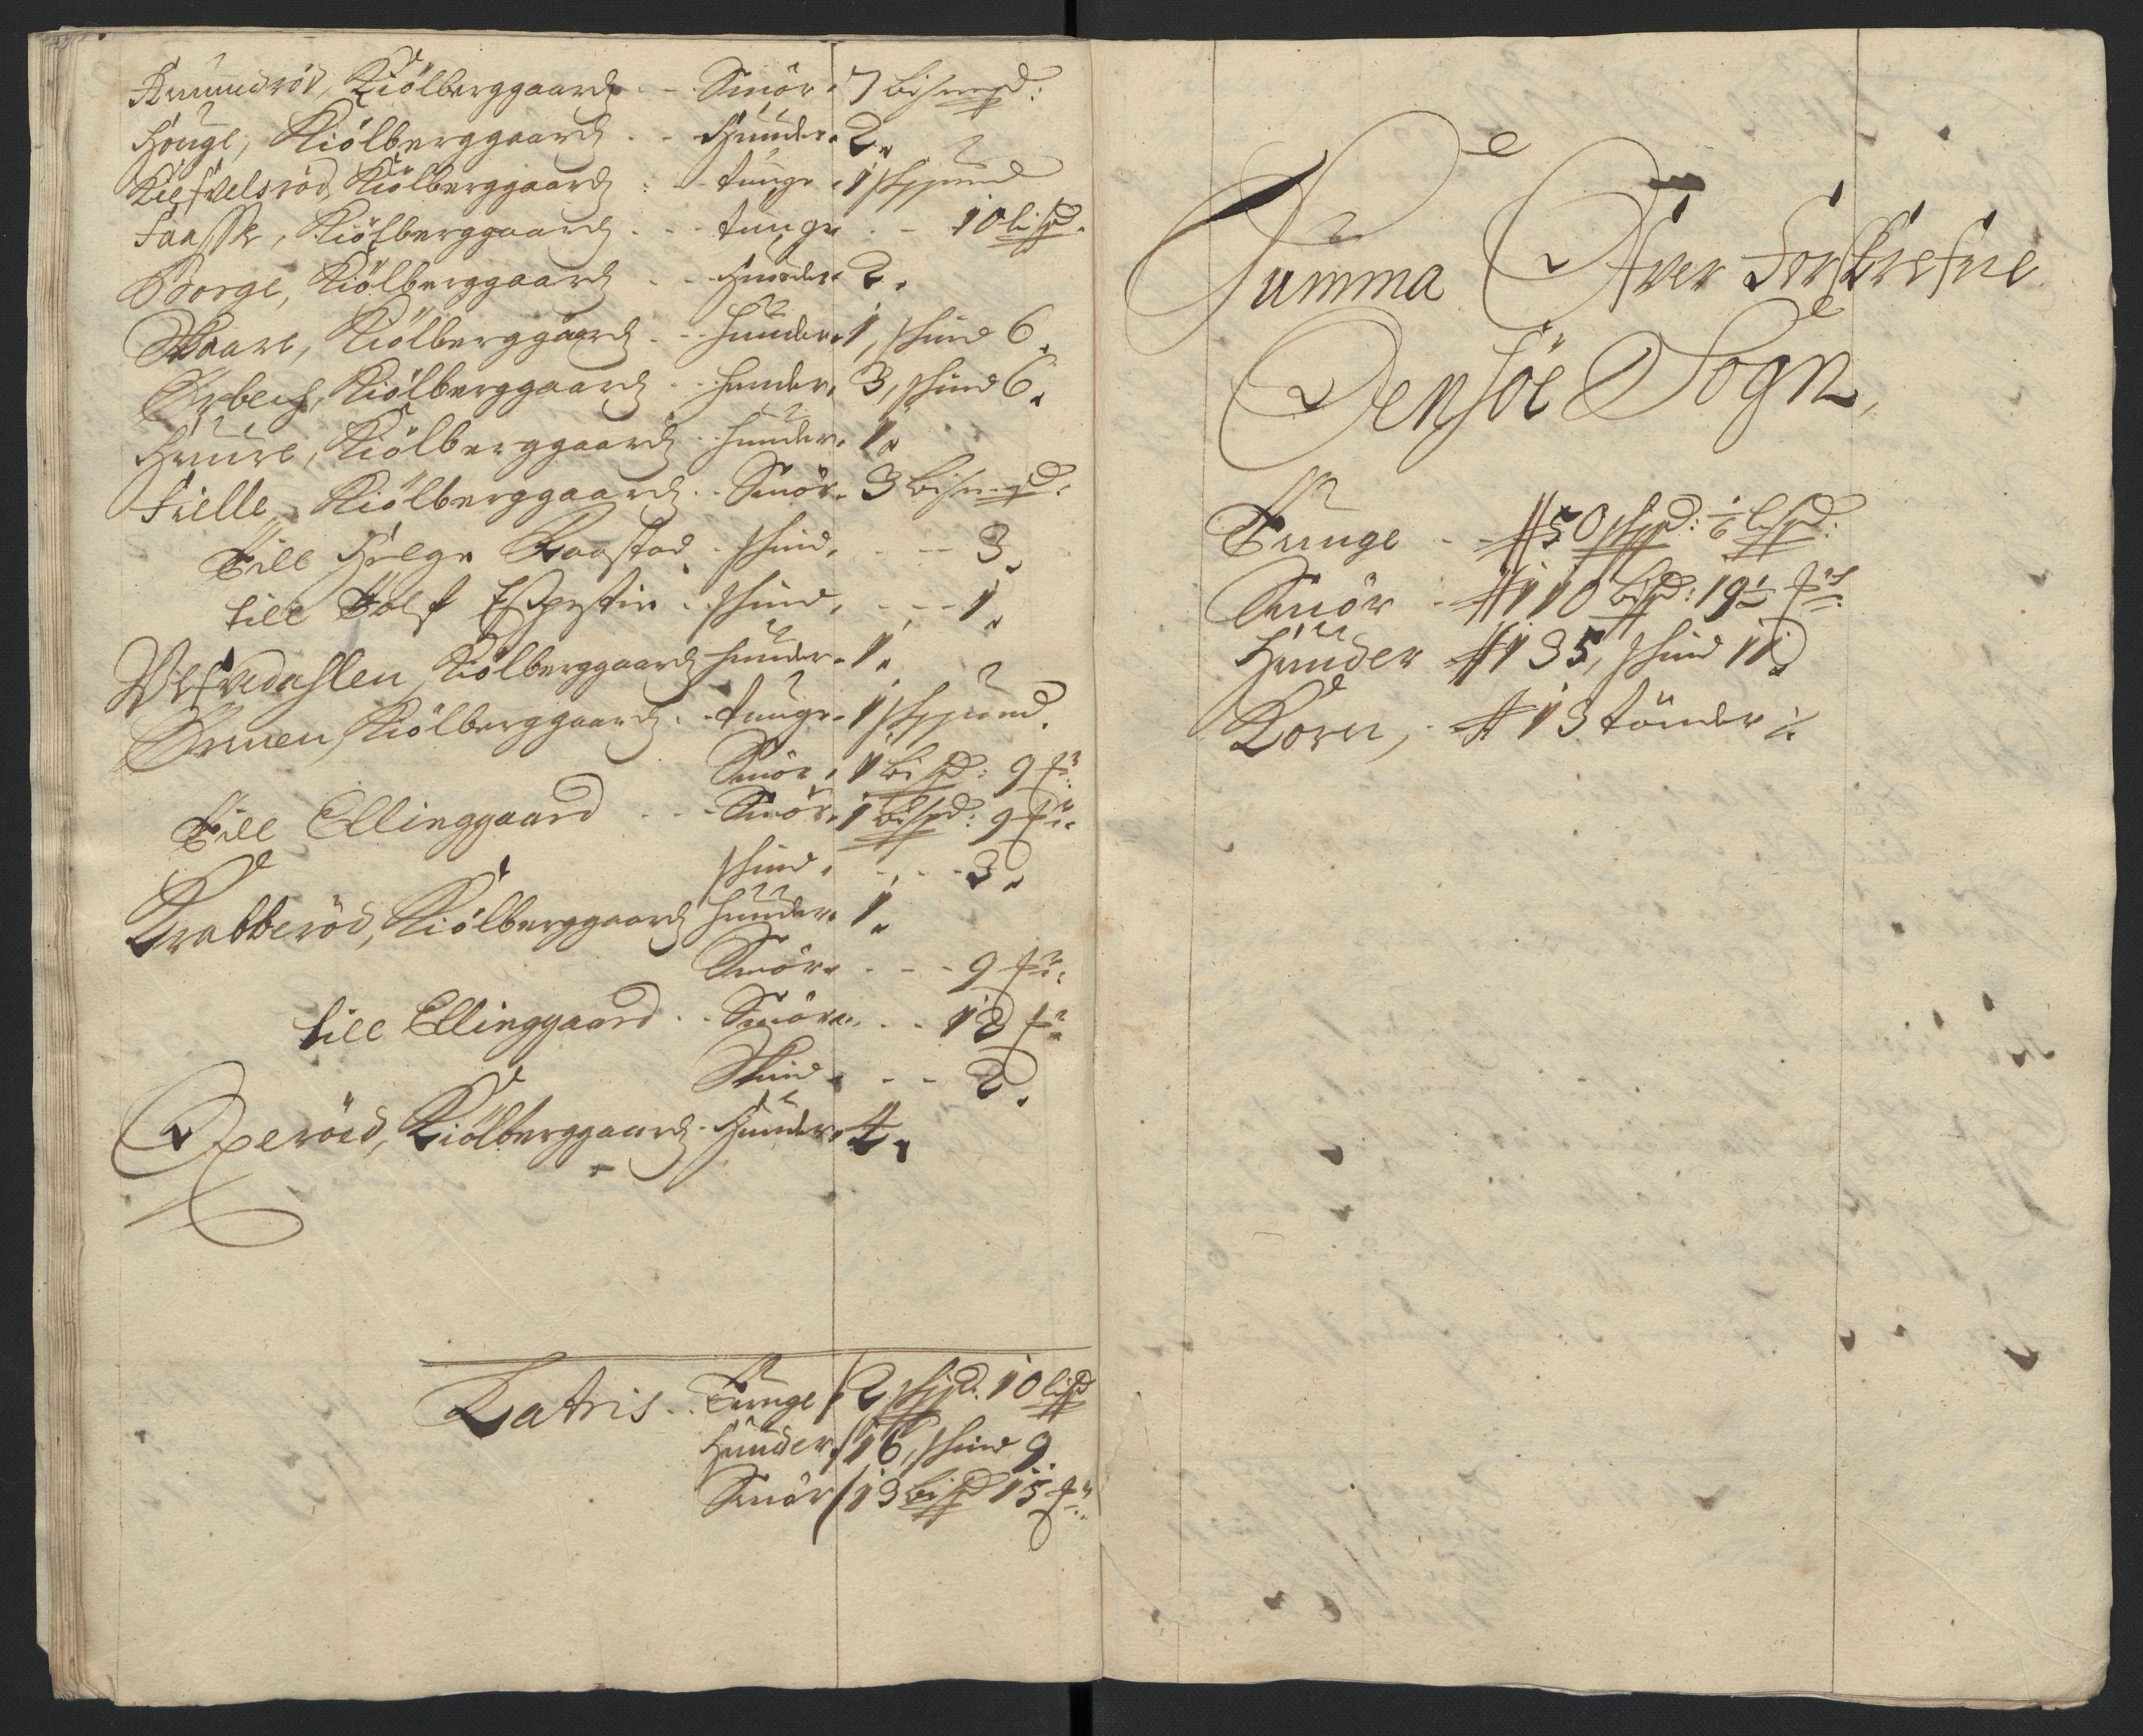 Amundröd, Kiölberggaard - - Smör. 7 bismpd:
Houge, Kiölberggaard - - Huuder. 2.
Kiefvelsröd, Kiölberggaard - - tunge . 1 skippund
Faassk, Kiölberggaard - - tunge . - 10 lispd.
Borge, Kiölberggaard - - Huuder. 2.
Skaare, Kiölberggaard - - huuder. 1, skind 6.
Ørbech, Kiölberggaard - - huuder. 3, skind 6.
Huure, Kiölberggaard - - huuder. 1.
Fielle, Kiölberggaard - - Smör. 3 bismpd:
Till Helge Raastad - skind. - - 3.
till Rolf Espestin - skind. - - 1.
Vefvedahlen, Kiölberggaard huuder. 1.
Ørmen, Kiölberggaard - tunge. 1 skippund.
Smör. 1 bispd: 9 ℔r:
Till Ellinggaard - - Smör. 1 bispd: 9 ℔r:
skind. - - 3.
Krabberöd, Kiölberggaard huuder. 1.
Smör. - - 9 ℔r:
till Ellinggaard - - Smör. - - 12 ℔r
Skind. - - 2.
Oxeröed, Kiölberggaard - Huuder. 4.
Latris - Tunge 2 skpd: 10 lispd
Huuder. 16, skind 9.
Smör 13 bispd 15 ℔r:
Summa Ofver Forskrefne
Oensöe Sogn,
Tunge - - # 50 skpd: 6 lispd:
Smör - # 110 bispd: 19½ ℔r:
Huuder # 135, skind 11.
Korn, - # 13 tönder ⁒